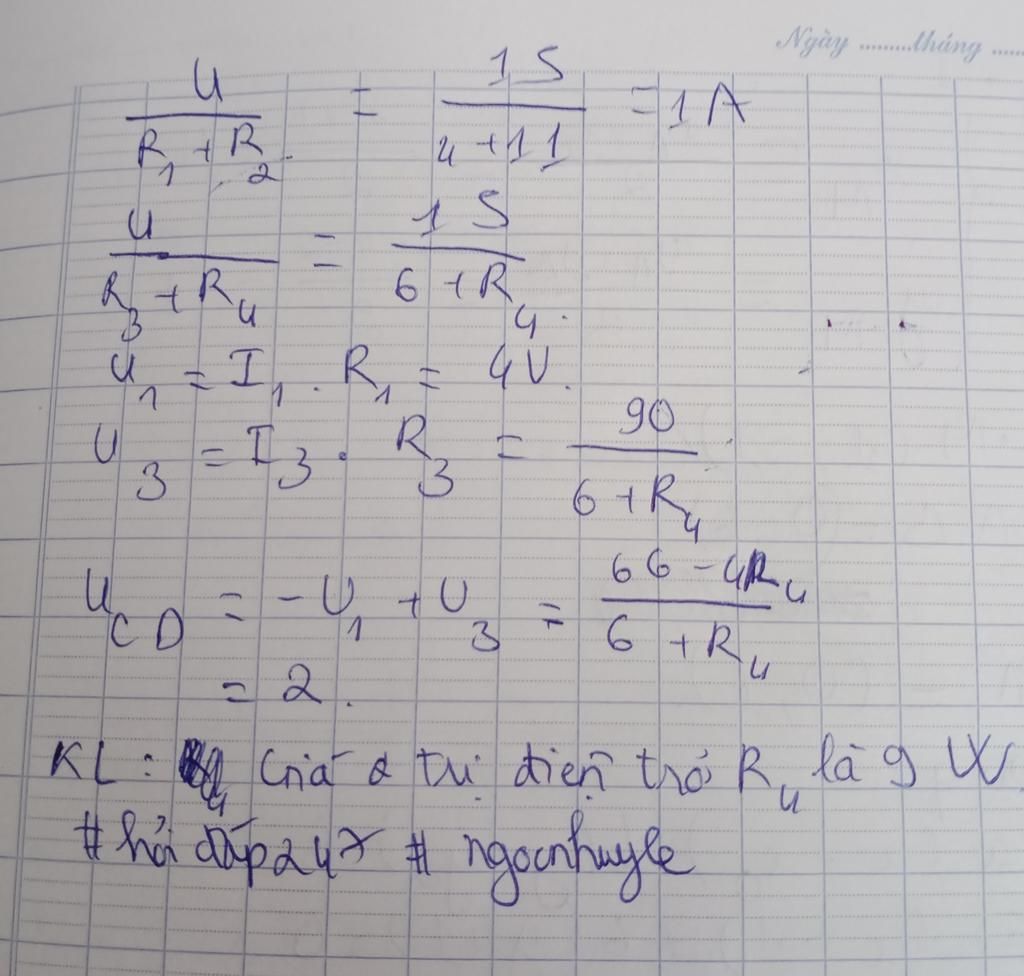 Ngày ........tháng .....
U/(R1 + R2) = 15/(4 + 11) = 1A
U/(R3 + R4) = 15/(6 + R4)
U1 = I1 . R1 = 4V.
U3 = I3 . R3 = 90/(6 + R4)
UCD = -U1 + U3 = (66 - 4R4)/(6 + R4)
= 2.
KL: Giá trị điện trở R4 là 9 W
# hỏi đáp 247 # ngocnhuyle